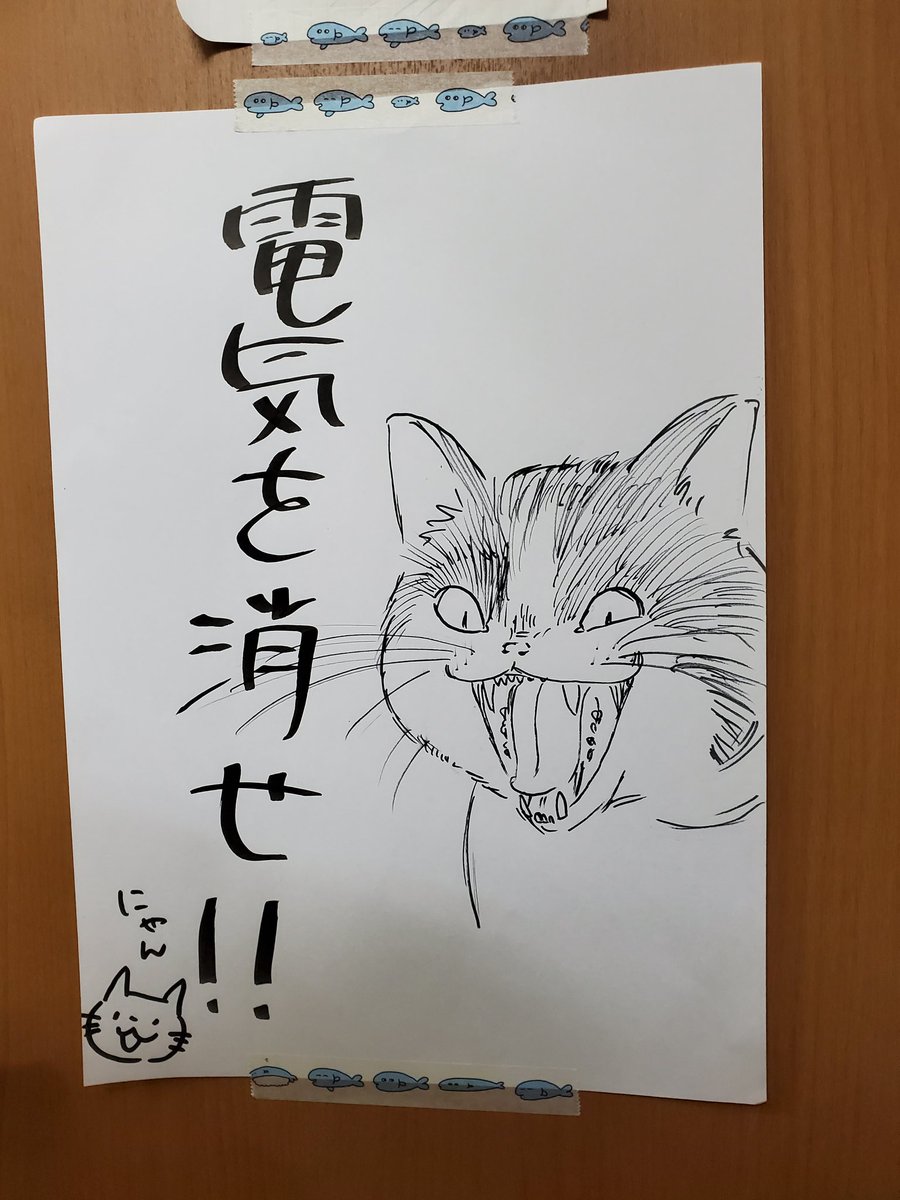 電気を消せ!!
にゃん